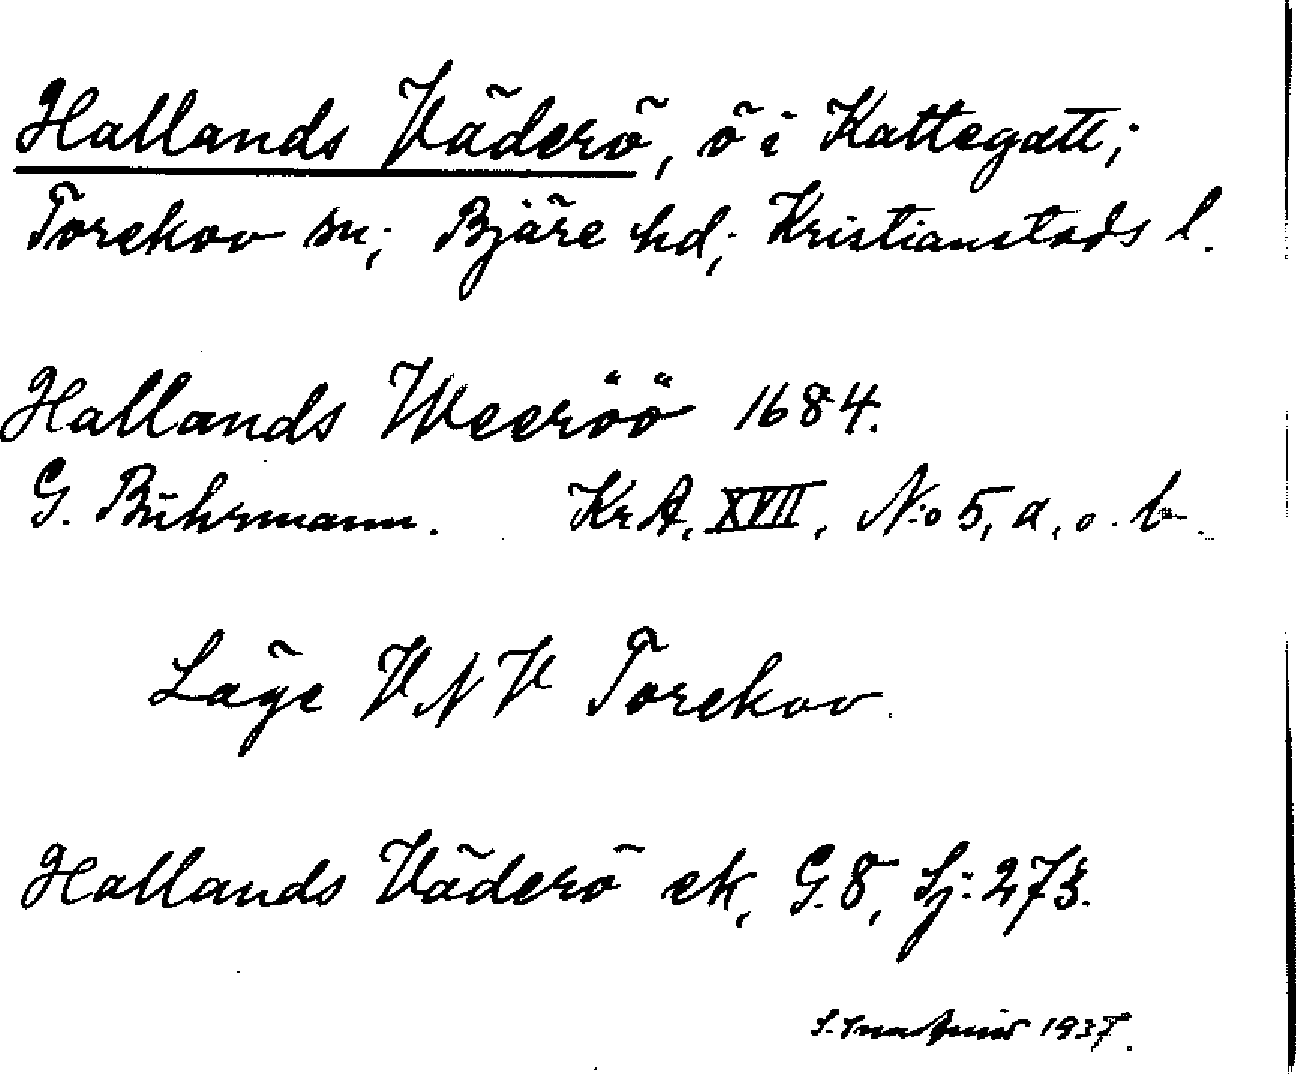 Hallands Väderö, ö i Kattegatt;
Torekov sn; Bjäre hd; Kristianstads l.
Hallands Weeröö 1684.
G. Buhrmann. KrA, XVII, N:o 5, a, o. b.
Läge VNV Torekov.
Hallands Väderö ek, G. 8, Sj: 273.
1937.